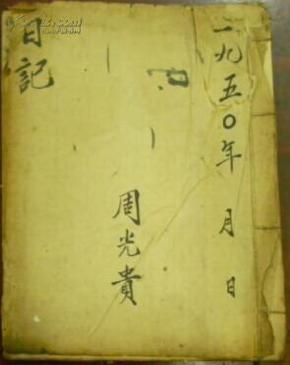 一九五〇年 月 日
周光貴
日記